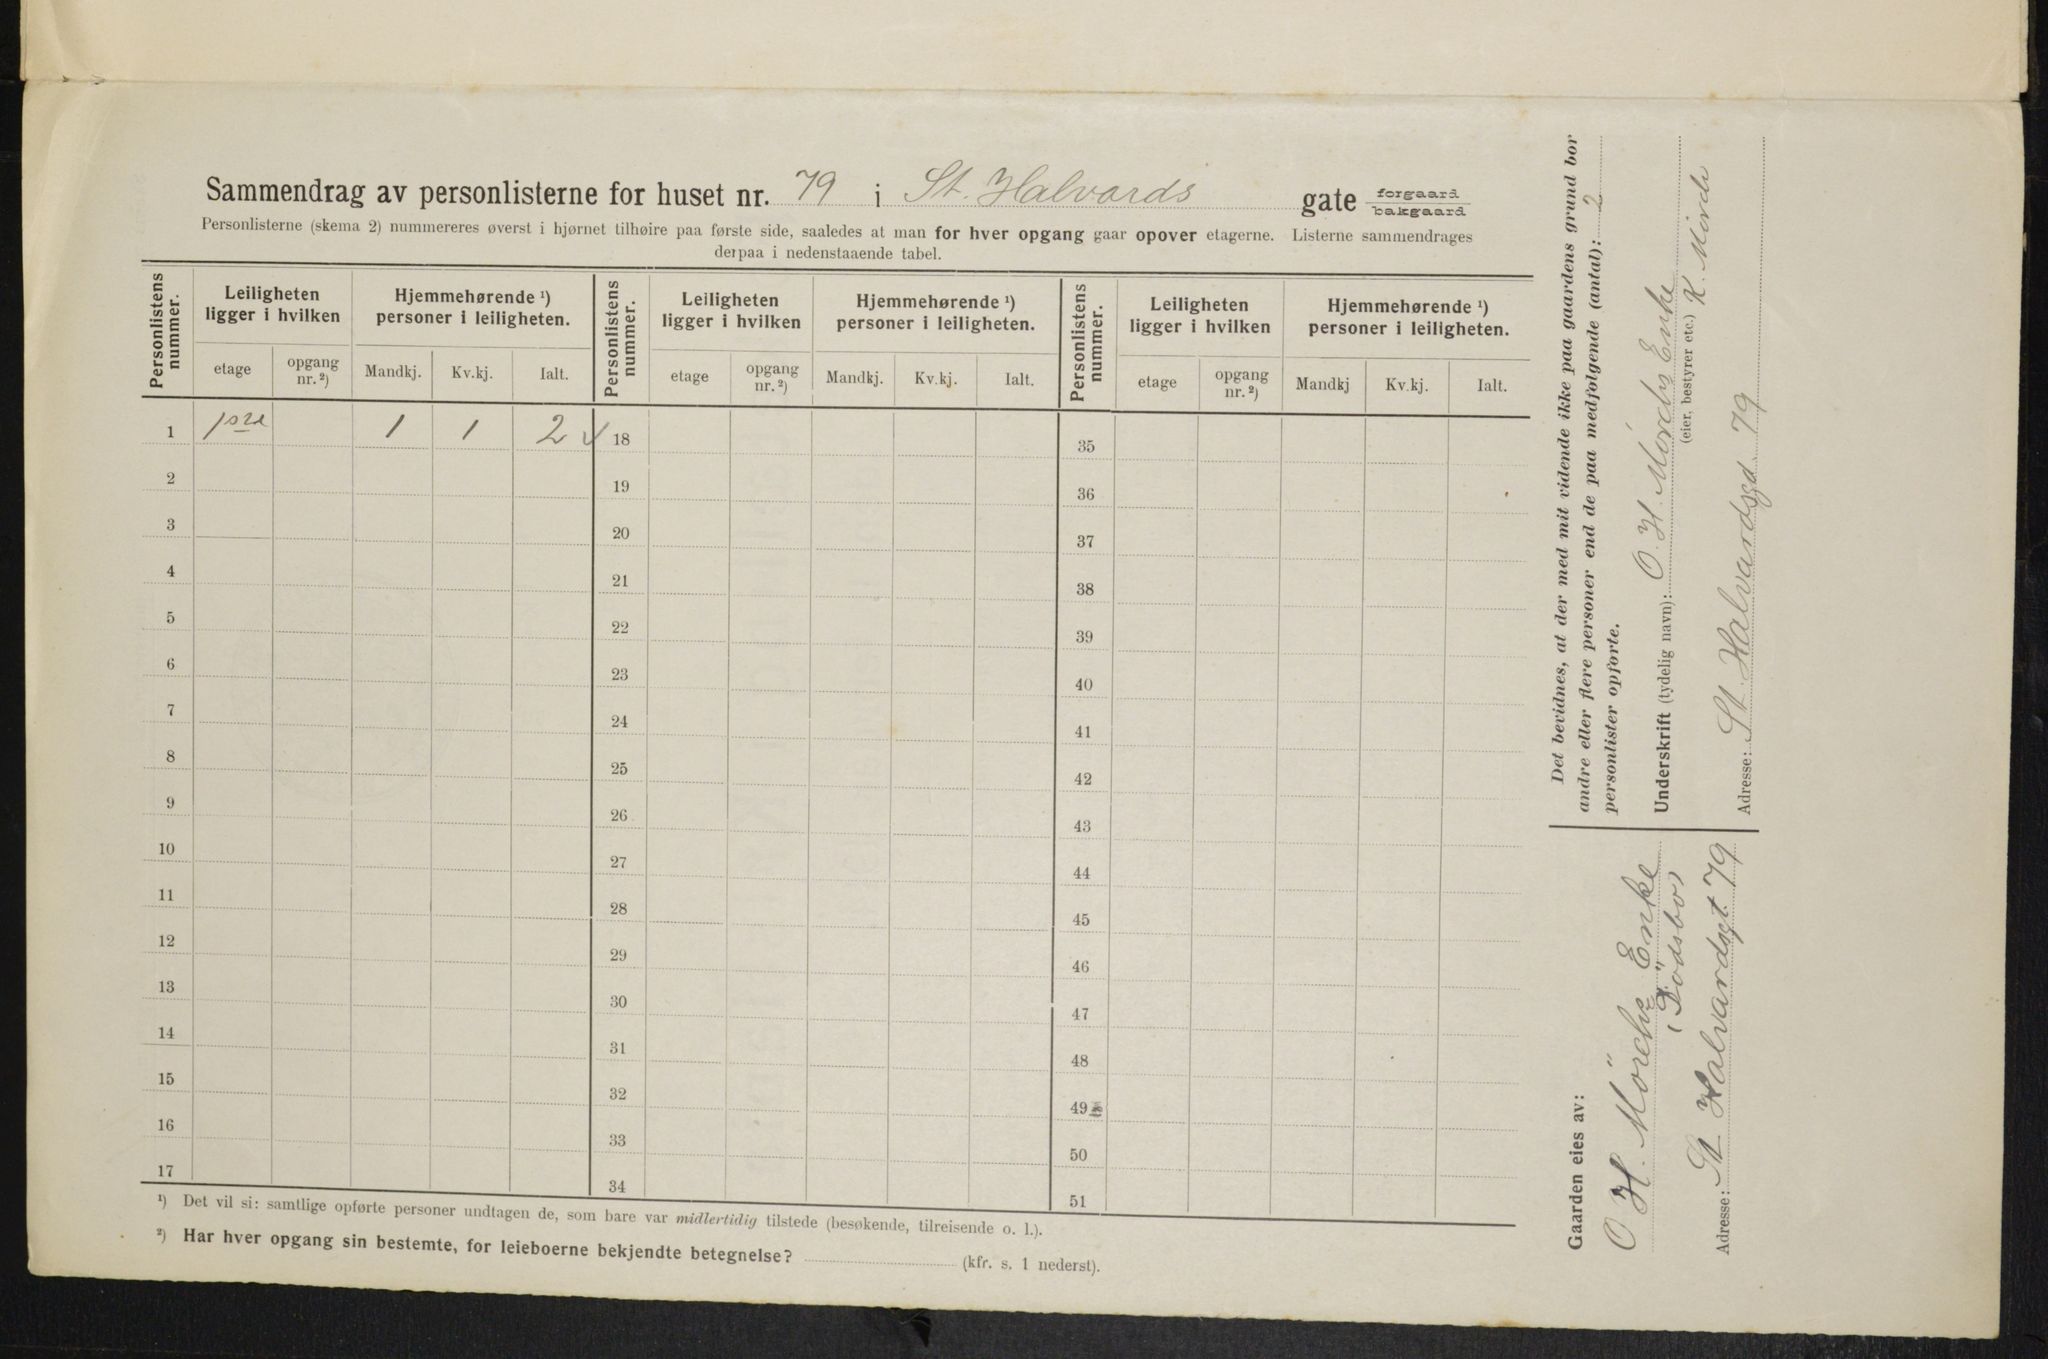 Sammendrag av personlisterne for huset nr. 79 i St. Halvards gate forgaard bakgaard
Personlisterne (skema 2) nummereres øverst i hjørnet tilhøire paa første side, saaledes at man for hver opgang gaar opover etagerne. Listerne sammendrages
derpaa i nedenstaaende tabel.
Personlistens nummer. Leiligheten ligger i hvilken Hjemmehørende ¹) personer i leiligheten. Personlistens nummer. Leiligheten ligger i hvilken Hjemmehørende ¹) personer i leiligheten. Personlistens nummer. Leiligheten ligger i hvilken Hjemmehørende ¹) personer i leiligheten.
etage opgang nr. ²) Mandkj. Kv.kj. Ialt. etage opgang nr. ²) Mandkj. Kv.kj. Ialt. etage opgang nr. ²) Mandkj Kv.kj. Ialt.
1 1 1 2 18 35
2 19 36
3 20 37
4 21 38
5 22 39
6 23 40
7 24 41
8 25 42
9 26 43
10 27 44
11 28 45
12 29 46
13 30 47
14 31 48
15 32 49
16 33 50
17 34 51
¹) Det vil si: samtlige opførte personer undtagen de, som bare var midlertidig tilstede (besøkende, tilreisende o. l.).
²) Har hver opgang sin bestemte, for leieboerne bekjendte betegnelse? (kfr. s. 1 nederst).
Det bevidnes, at der med mit vidende ikke paa gaardens grund bor
andre eller flere personer end de paa medfølgende (antal): 2
personlister opførte.
Underskrift (tydelig navn): O. H. Mörchs Enke
(eier, bestyrer etc.) K. Mörch
Adresse: St. Halvardsgd 79
Gaarden eies av:
O H. Mörchs Enke
(Dödsbo)
Adresse: St Halvardsgt. 79